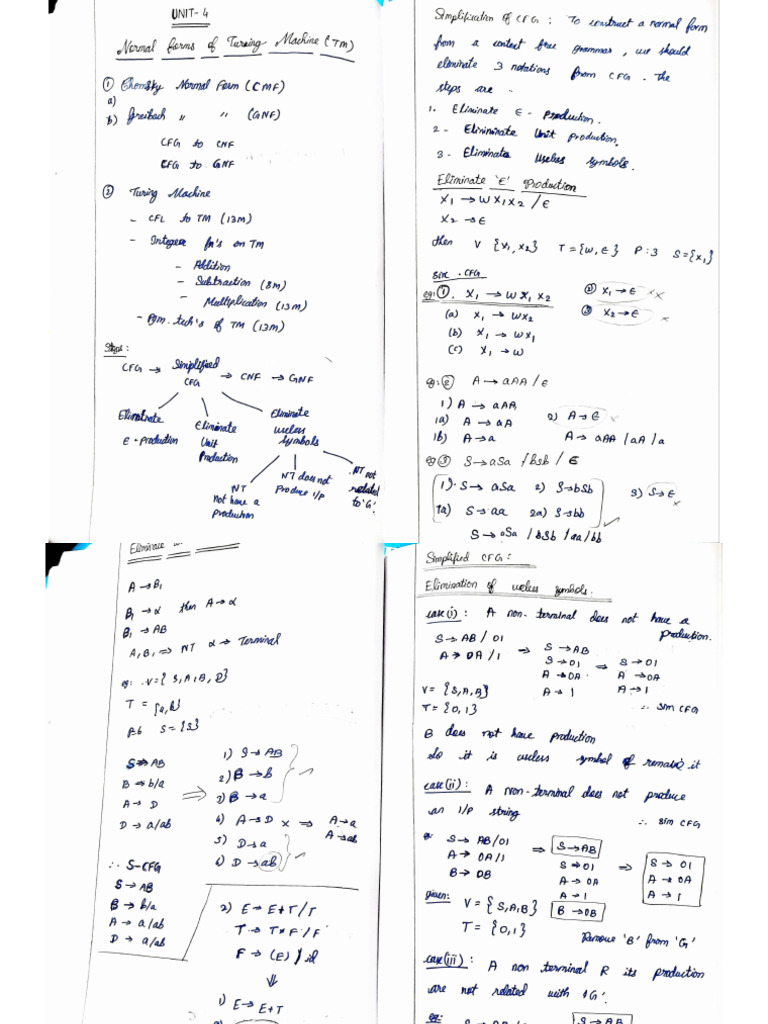 UNIT-4
Normal forms of Turing Machine (TM)
① Chomsky Normal Form (CMF)
a)
b) Greibach " " (GNF)
CFG to CNF
CFG to GNF
② Turing Machine
- CFL to TM (13M)
- Integer fn's on TM
- Addition
- Subtraction (8M)
- Multiplication (13M)
- Pgm. tech's of TM (13M)
Steps:
CFG → Simplified CFG → CNF → GNF
Eliminate ε-production
Eliminate Unit Production
Eliminate useless symbols
NT not have a production
NT does not produce I/P
NT not related to 'G'.
Simplification of CFG : To construct a normal form
from a context free grammar, we should
eliminate 3 notations from CFG. The
steps are -
1. Eliminate ε- production.
2 - Elininimate Unit production.
3 - Eliminate Useless symbols.
Eliminate 'ε' Production
X1 → WX1X2 / ε
X2 → ε
then V {X1, X2} T = {W, ε} P: 3 S = {X1}
Sim. CFG
eg: ①. X1 → W X1 X2 ② X1 → ε x
(a) X1 → WX2 ③ X2 → ε x
(b) X1 → WX1
(c) X1 → W
eg: ② A → aAA / ε
1) A → aAA 2) A → ε x
1a) A → aA
1b) A → a A → aAA / aA / a
eg ③ S → aSa / bSb / ε
1). S → aSa 2) S → bSb 3) S → ε x
1a) S → aa 2a) S → bb
S → aSa / bSb / aa / bb
Eliminate
A → B1
B1 → α then A → α
B1 → AB
A, B1 ⇒ NT α → Terminal
eg: V = {S, A, B, D}
T = {a, b}
P=6 S = {S}
S → AB
B → b/a
A → D
D → a/ab
1) S → AB
2) B → b
3) B → a
4) A → D x ⇒ A → a
A → ab
5) D → a
6) D → ab
∴ S-CFG
S → AB
B → b/a
A → a/ab
D → a/ab
2) E → E+T / T
T → T*F / F
F → (E) / id
1) E → E+T
Simplified CFG:
Elimination of useless symbols.
case(i) : A non-terminal does not have a
production.
S → AB / 01
A → 0A / 1
⇒ S → AB
S → 01
A → 0A
A → 1
⇒ S → 01
A → 0A
A → 1
V = {S, A, B}
T = {0, 1}
∴ Sim CFG
B does not have production
So it is useless symbol of remove it
case(ii) : A non-terminal does not produce
an I/P string
∴ Sim CFG
S → AB/01
A → 0A/1
B → 0B
⇒ S → AB
S → 01
A → 0A
A → 1
B → 0B
⇒ S → 01
A → 0A
A → 1
given: V = {S, A, B}
T = {0, 1}
Remove 'B' from 'G'
case(iii) : A non terminal R its production
are not related with 'G'.
eg:
S → AB